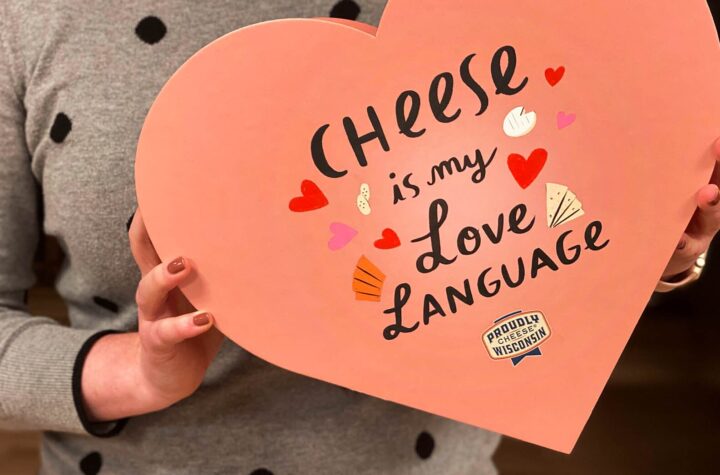 CHEESE
is my
Love
LANGUAGE
PROUDLY
CHEESE®
WISCONSIN